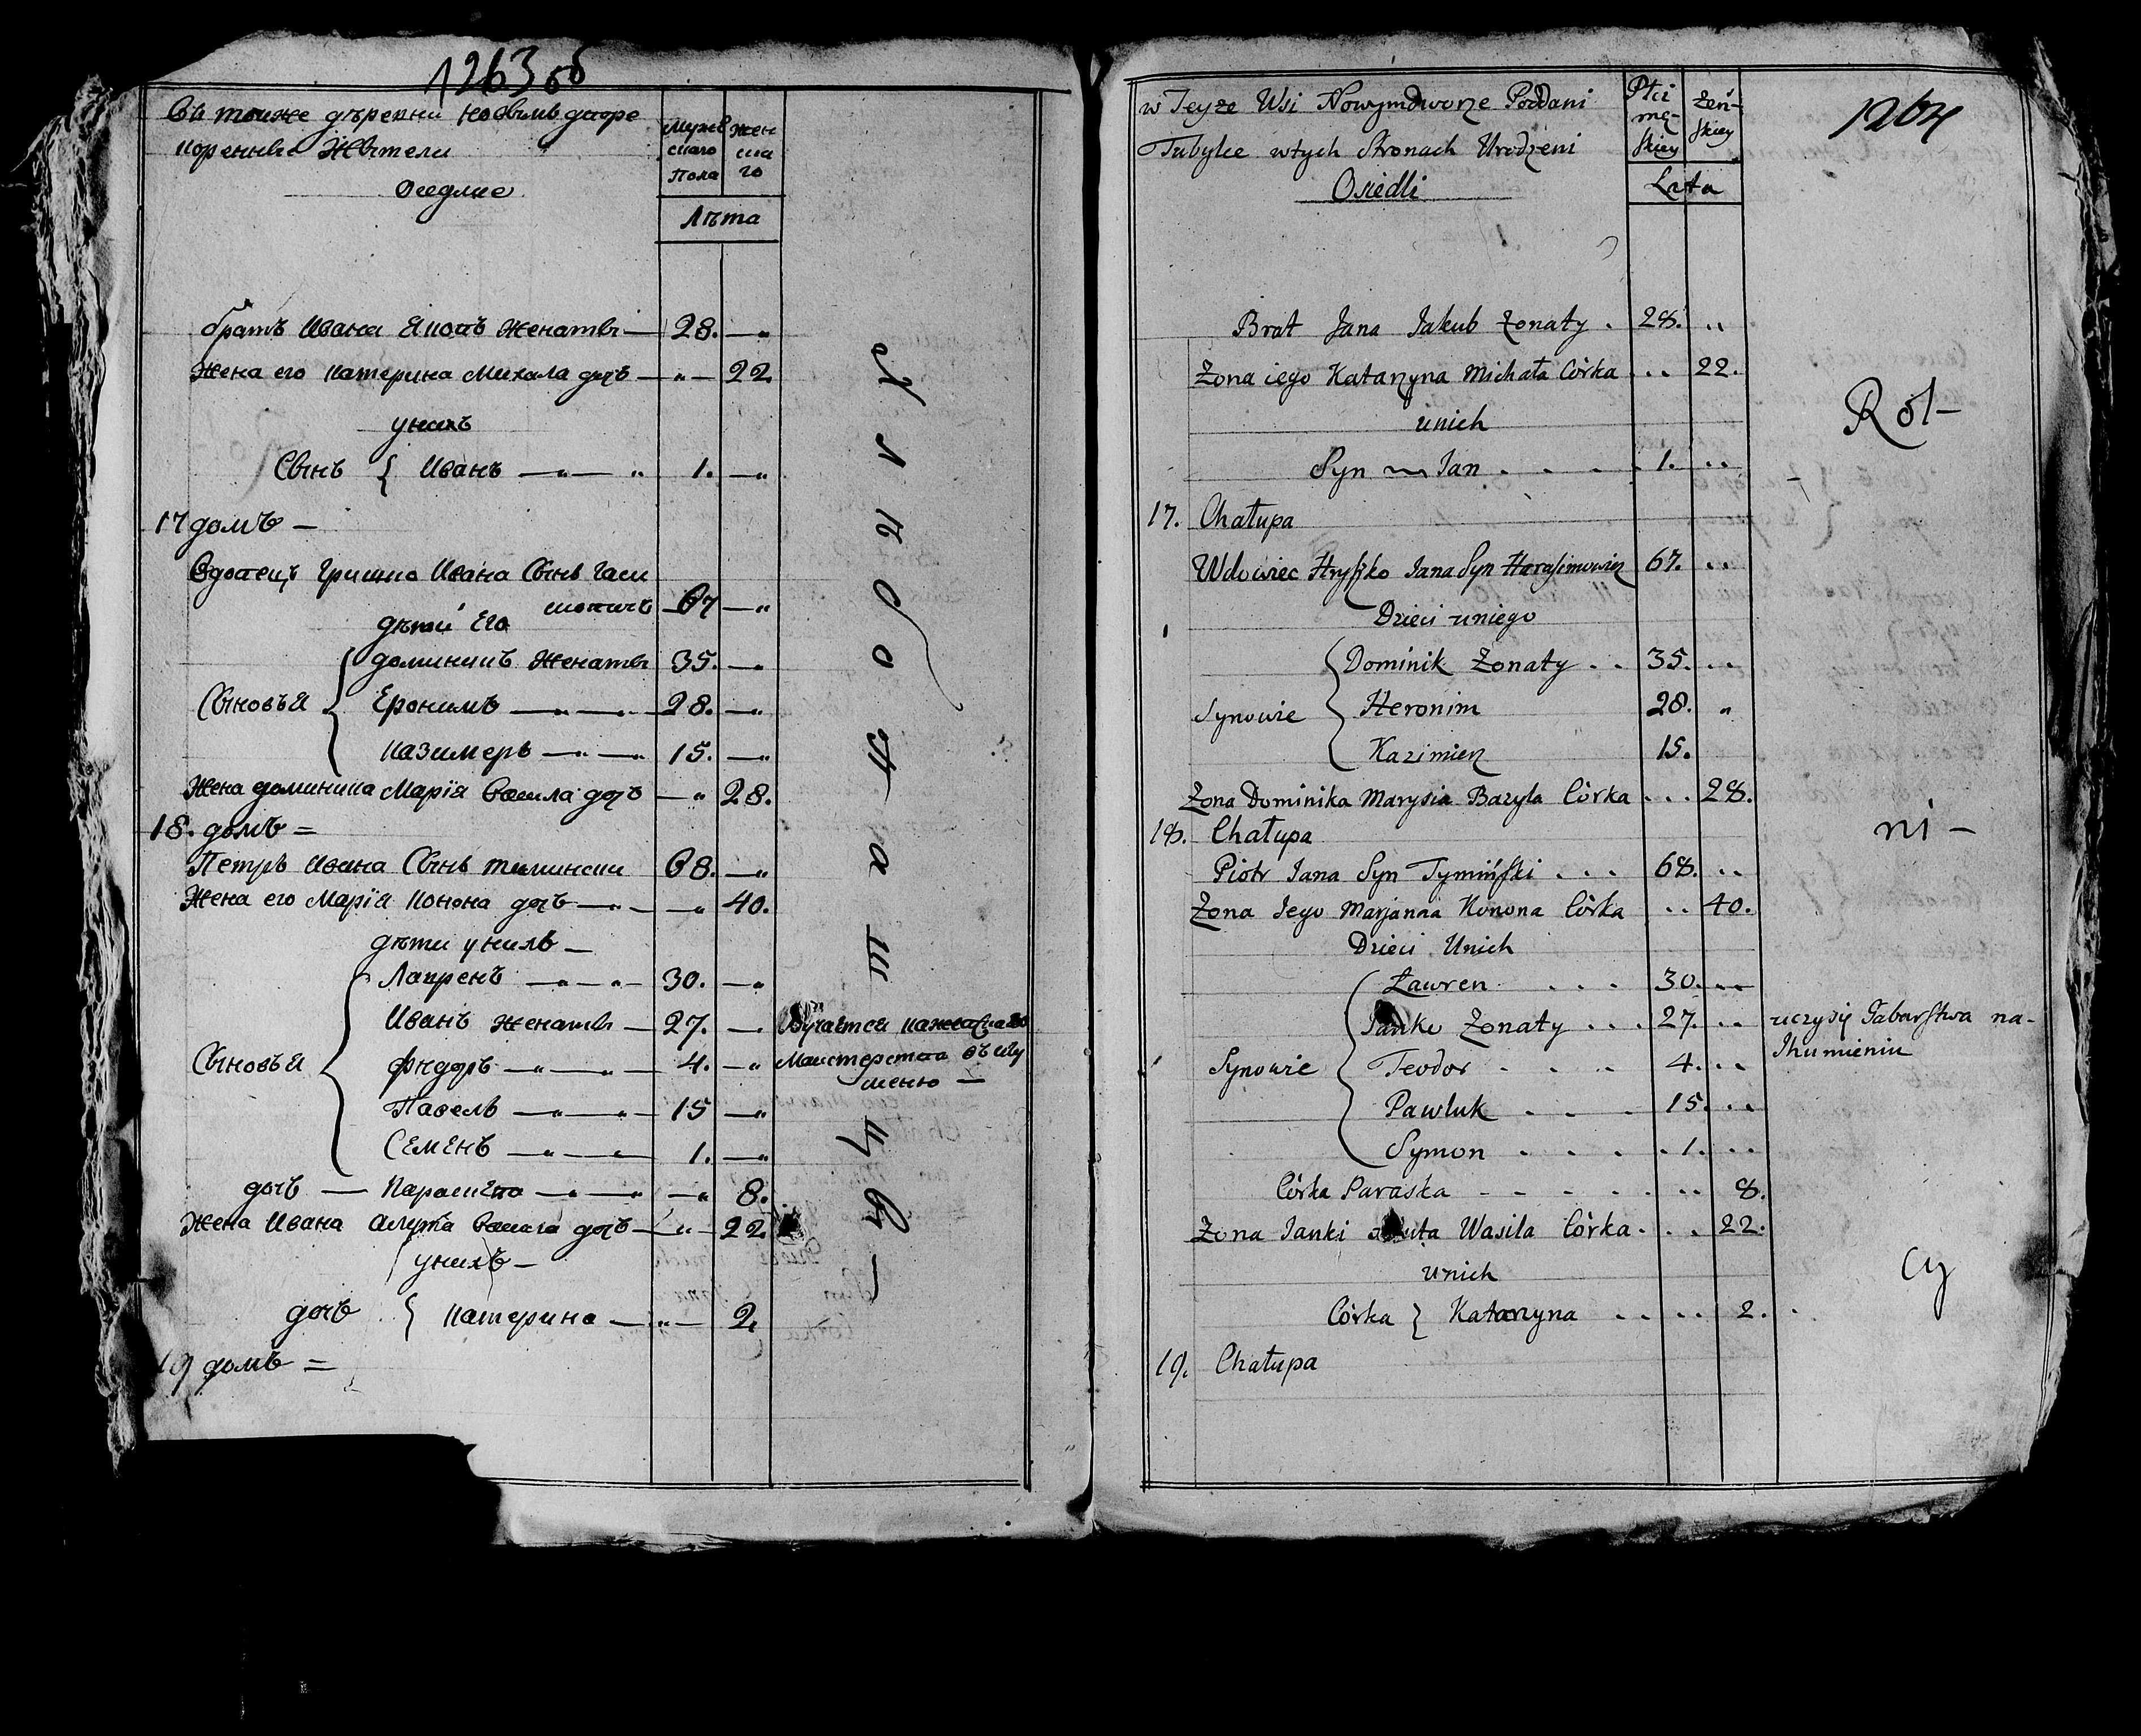 1263 об
Въ тоиже дъревни новомъ дворе
коренные Жѣтели
Оседлие
Мужескаго Пола
Женскаго
Лѣта
братъ Ивана Якобъ женаты — 28. — „
Жена его Катерина Михала дочь — „ — 22
у нихъ
Сынъ { Иванъ — „ — „ 1. — „
17 домъ —
Вдовецъ Гришко Ивана Сынъ
67 — „
дѣти Его
Доминикъ Женаты 35. — „
Сыновья { Еронимъ — „ — „ 28. — „
Казимеръ — „ — 15. — „
Жена доминика Марія Васила дочь — „ 28.
18. домъ =
Петръ Ивана Сынъ Тимински 68. — „
Жена его Марія Конона дочь — „ — „ 40.
дѣти у нихъ —
Лавренъ — „ — „ — 30. — „
Иванъ женаты — 27. — Вучается
Сыновья { Фядоръ — „ — „ — 4. — „ Маистерства въ Игу
меню —
Павелъ — „ — „ — 15 — „
Семенъ — „ — 1. — „
дочь — Параска — „ — „ — „ 8.
Жена Ивана Василя дочь — „ — 22
у нихъ —
дочь { Катерина — „ — 2.
19 домъ =
Хлѣбопашцы —
w Teyże Wsi Nowymdworze Poddani
Tubylce w tych Stronach Urodzeni
Osiedli
Płci męskiey
żeńskiey
Lata
1264
Brat Jana Jakub Żonaty . 28. ..
Żona iego Katarzyna Michała Córka . . . 22.
unich
Syn Jan . . . . 1. ..
17. Chałupa
Wdowiec Hryszko Jana Syn Harasimowicz 67. ..
Dzieci uniego
Dominik Żonaty . . 35. ..
Synowie { Heronim 28. „
Kazimierz 15.
Żona Dominika Marysia Bazyla Córka . . . 28.
18. Chałupa
Piotr Jana Syn Tymiński . . . 68. ..
Żona Jego Marjanna Konona Córka . . 40.
Dzieci Unich
Ławren . . . 30. ..
Janko Żonaty . . . 27. .. uczy się Gabarstwa na-
Ihumieniu
Synowie { Teodor . . . 4. ..
Pawluk . . . 15. ..
Symon . . . . 1. ..
Córka Paraska - - - . . . . 8.
Żona Janki Wasila Córka . . . 22.
unich
Córka } Katarzyna . . . . 2.
19. Chałupa
Rol-
ni-
cy